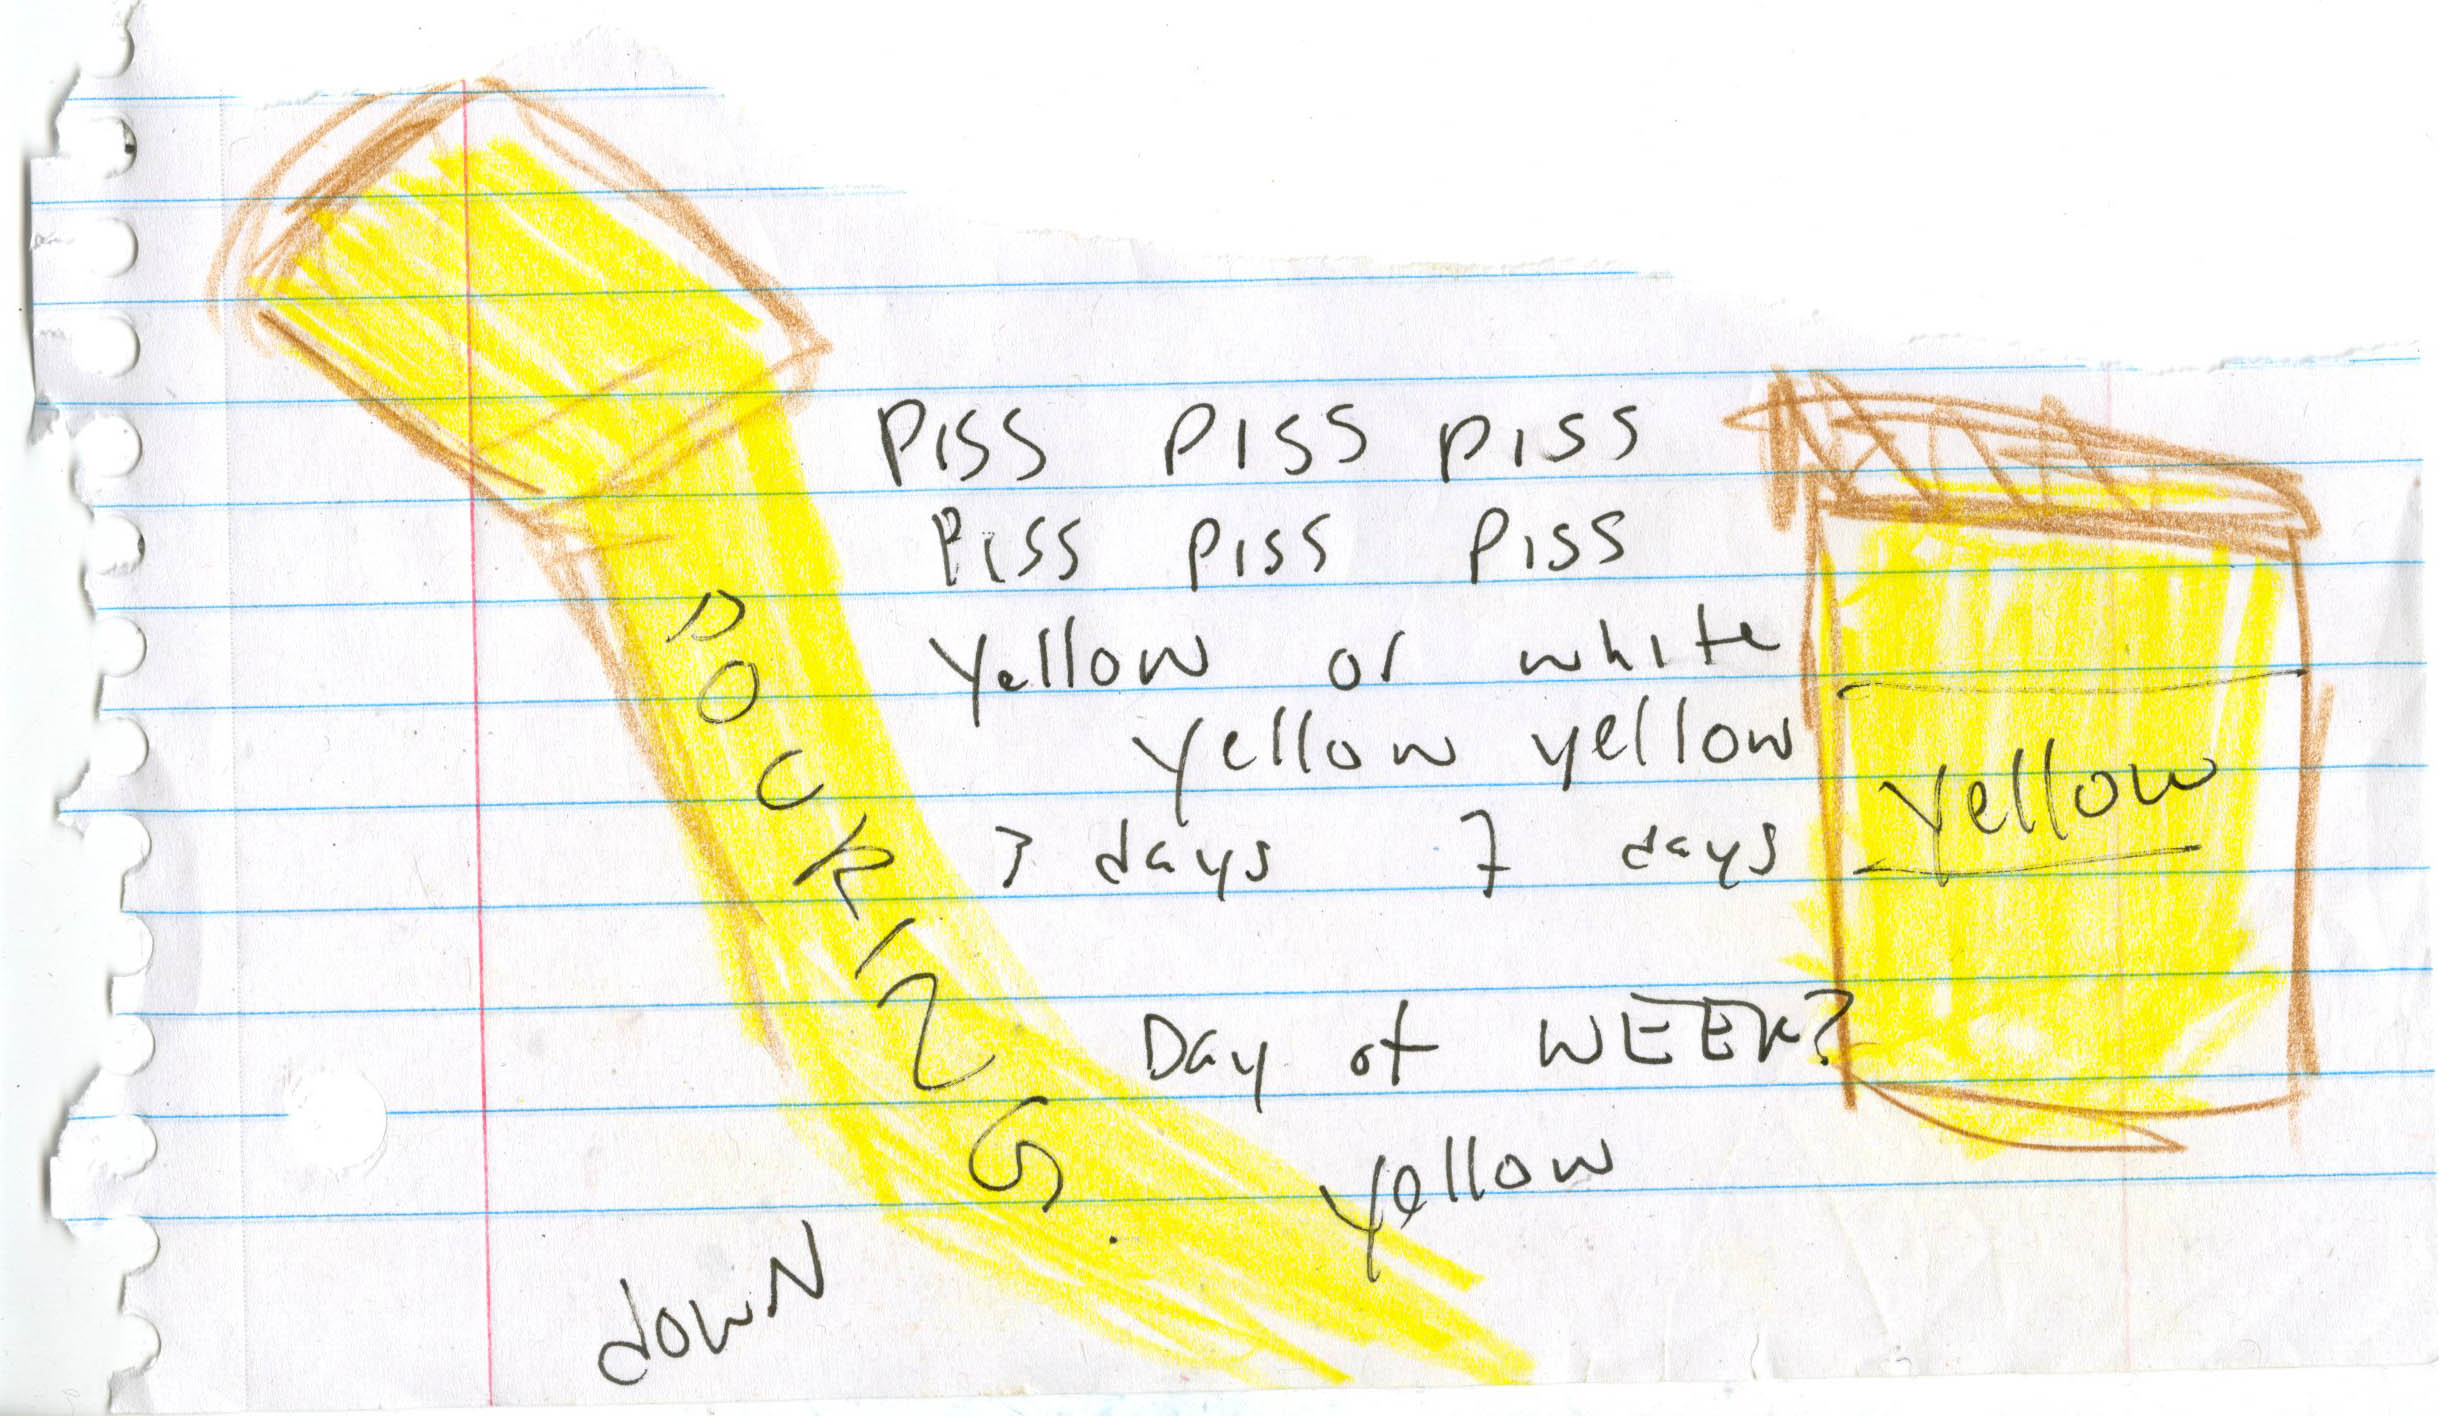 PISS PISS PISS
PISS PISS PISS
Yellow or white
yellow yellow
3 days 7 days
Day of WEEK?
yellow
POURING
down
yellow